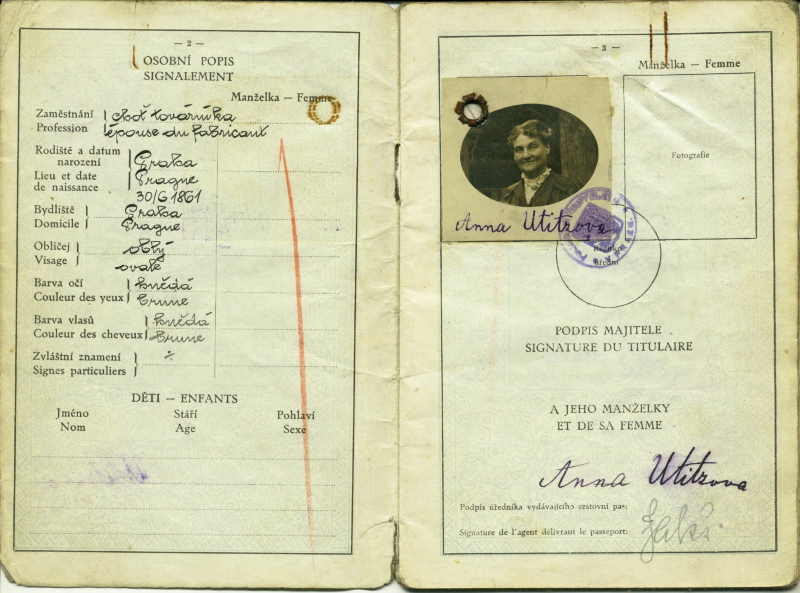 — 2 —
OSOBNÍ POPIS
SIGNALEMENT
Manželka — Femme
Zaměstnání
Profession
choť továrníka
épouse du fabricant
Rodiště a datum
narození
Lieu et date
de naissance
Praha
Prague
30/6 1861
Bydliště
Domicile
Praha
Prague
Obličej
Visage
oblý
ovale
Barva očí
Couleur des yeux
hnědá
brune
Barva vlasů
Couleur des cheveux
hnědá
brune
Zvláštní znamení
Signes particuliers
DĚTI — ENFANTS
Jméno Stáří Pohlaví
Nom Age Sexe
— 3 —
Manželka — Femme
Fotografie
Anna Utitzova
PODPIS MAJITELE
SIGNATURE DU TITULAIRE
A JEHO MANŽELKY
ET DE SA FEMME
Anna Utitzova
Podpis úředníka vydávajícího cestovní pas:
Signature de l'agent délivrant le passeport: